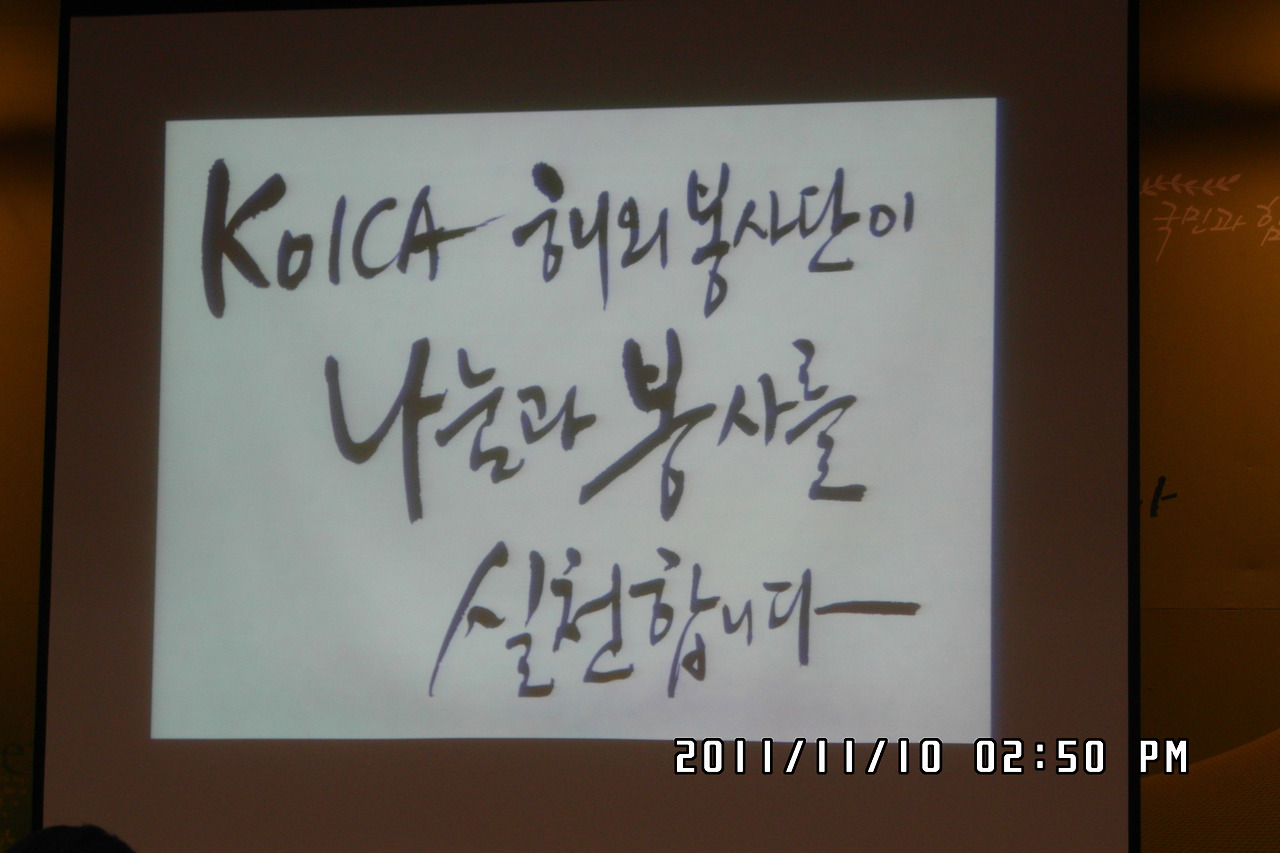 KOICA 해외봉사단이
나눔과 봉사를
실천합니다
국민과
2011/11/10 02:50 PM